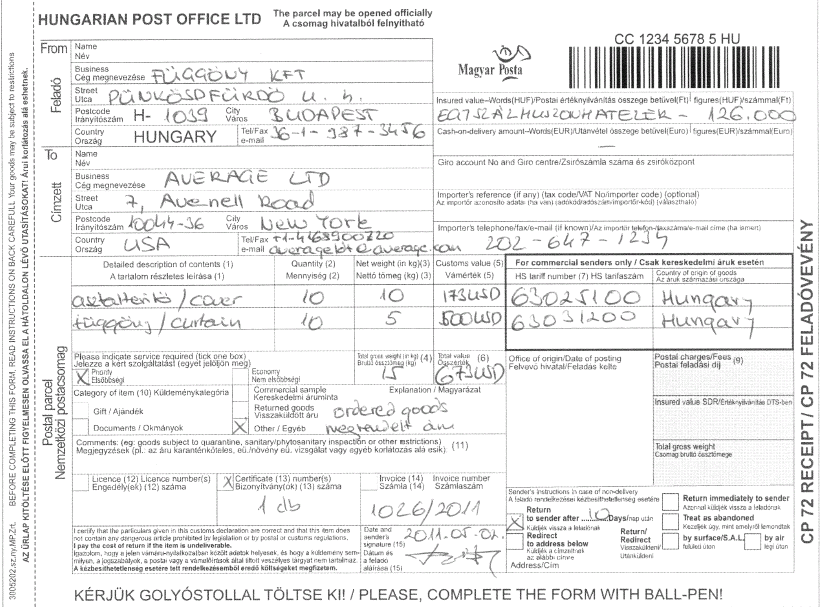 HUNGARIAN POST OFFICE LTD
The parcel may be opened officially
A csomag hivatalból felnyitható
CC 1234 5678 5 HU
Magyar Posta
From
Feladó
Name
Név
Business
Cég megnevezése FÜGGÖNY KFT
Street
Utca PÜNKÖSDFÜRDŐ U. 4.
Postcode
Irányítószám H- 1039 City
Város BUDAPEST
Country
Ország HUNGARY Tel/Fax
e-mail 36-1-987-3456
Insured value–Words(HUF)/Postai értéknyilvánítás összege betűvel(Ft) figures(HUF)/számmal(Ft)
EGYSZÁZHUSZONHATEZER - 126.000
Cash-on-delivery amount–Words(EUR)/Utánvétel összege betűvel(Euro) figures(EUR)/számmal(Euro)
—
Giro account No and Giro centre/Zsírószámla száma és zsíróközpont
Importer's reference (if any) (tax code/VAT No/importer code) (optional)
Az importőr azonosító adatai (ha van) (adókód/adószám/importőr-kód) (választható)
Importer's telephone/fax/e-mail (if known)/Az importőr telefon-/telefaxszáma/e-mail címe (ha ismert)
202-647-1234
To
Címzett
Name
Név
Business
Cég megnevezése AVERAGE LTD
Street
Utca 7, Avenell Road
Postcode
Irányítószám 10044-36 City
Város New York
Country
Ország USA Tel/Fax
e-mail
Detailed description of contents (1)
A tartalom részletes leírása (1)
Quantity (2)
Mennyiség (2)
Net weight (in kg)(3)
Nettó tömeg (kg) (3)
Customs value (5)
Vámérték (5)
For commercial senders only / Csak kereskedelmi áruk esetén
HS tariff number (7) HS tanfaszám
Country of origin of goods
Az áruk származási országa
asztalterítő/cover 10 10 173USD 63025100 Hungary
függöny/curtain 10 5 500USD 63031200 Hungary
Postal parcel
Nemzetközi postacsomag
Please indicate service required (tick one box)
Jelezze a kért szolgáltatást (egyet jelöljön meg)
X Priority
Elsőbbségi
Economy
Nem elsőbbségi
Total gross weight (in kg) (4)
Bruttó össztömeg (kg)
15
Total value (6)
Összérték
673USD
Office of origin/Date of posting
Felvevő hivatal/Feladás kelte
Postal charges/Fees (9)
Postai feladási díj
Category of item (10) Küldeménykategória
Gift / Ajándék
Documents / Okmányok
Commercial sample
Kereskedelmi áruminta
Returned goods
Visszaküldött áru
X Other / Egyéb
Explanation / Magyarázat
ordered goods
megrendelt áru
Insured value SDR/Értéknyilvánítás DTS-ben
Comments: (eg: goods subject to quarantine, sanitary/phytosanitary inspection or other restrictions) (11)
Megjegyzések (pl.: az áru karanténköteles, eü./növény eü. vizsgálat vagy egyéb korlátozás alá esik):
Total gross weight
Csomag bruttó össztömege
Licence (12) Licence number(s)
Engedély(ek) (12) száma
X Certificate (13) number(s)
Bizonyítvány(ok) (13) száma
1 db
Invoice (14)
Számla (14)
Invoice number
Számlaszám
1026/2011
Sender's instructions in case of non-delivery
A feladó rendelkezései kézbesíthetetlenség esetére
X Return
to sender after 10 Days/nap után
Küldjék vissza a feladónak
Redirect
to address below
Küldjék a címzettnek
az alábbi címre
Address/Cím
Return immediately to sender
Azonnal küldjék vissza a feladónak
Treat as abandoned
Kezeljék úgy, mint amelyről lemondtak
Return/
Redirect
Visszaküldeni/
Utánküldeni
by surface/S.A.L.
felületi úton
by air
légi úton
I certify that the particulars given in this customs declaration are correct and that this item does
not contain any dangerous article prohibited by legislation or by postal or customs regulations.
I pay the cost of return if the item is undeliverable.
Igazolom, hogy a jelen vámáru-nyilatkozatban közölt adatok helyesek, és hogy a küldemény sem-
milyen, a jogszabályok, a postai vagy a vámelőírások által tiltott veszélyes tárgyat nem tartalmaz.
A kézbesíthetetlenség esetére tett rendelkezésemből eredő költségeket megfizetem.
Date and
sender's
signature (15)
Dátum és
a feladó
aláírása (15)
KÉRJÜK GOLYÓSTOLLAL TÖLTSE KI! / PLEASE, COMPLETE THE FORM WITH BALL-PEN!
BEFORE COMPLETING THIS FORM, READ INSTRUCTIONS ON BACK CAREFULLY. Your goods may be subject to restrictions
AZ ŰRLAP KITÖLTÉSE ELŐTT FIGYELMESEN OLVASSA EL A HÁTOLDALON LÉVŐ UTASÍTÁSOKAT! Árui korlátozás alá eshetnek.
CP 72 RECEIPT / CP 72 FELADÓVEVÉNY